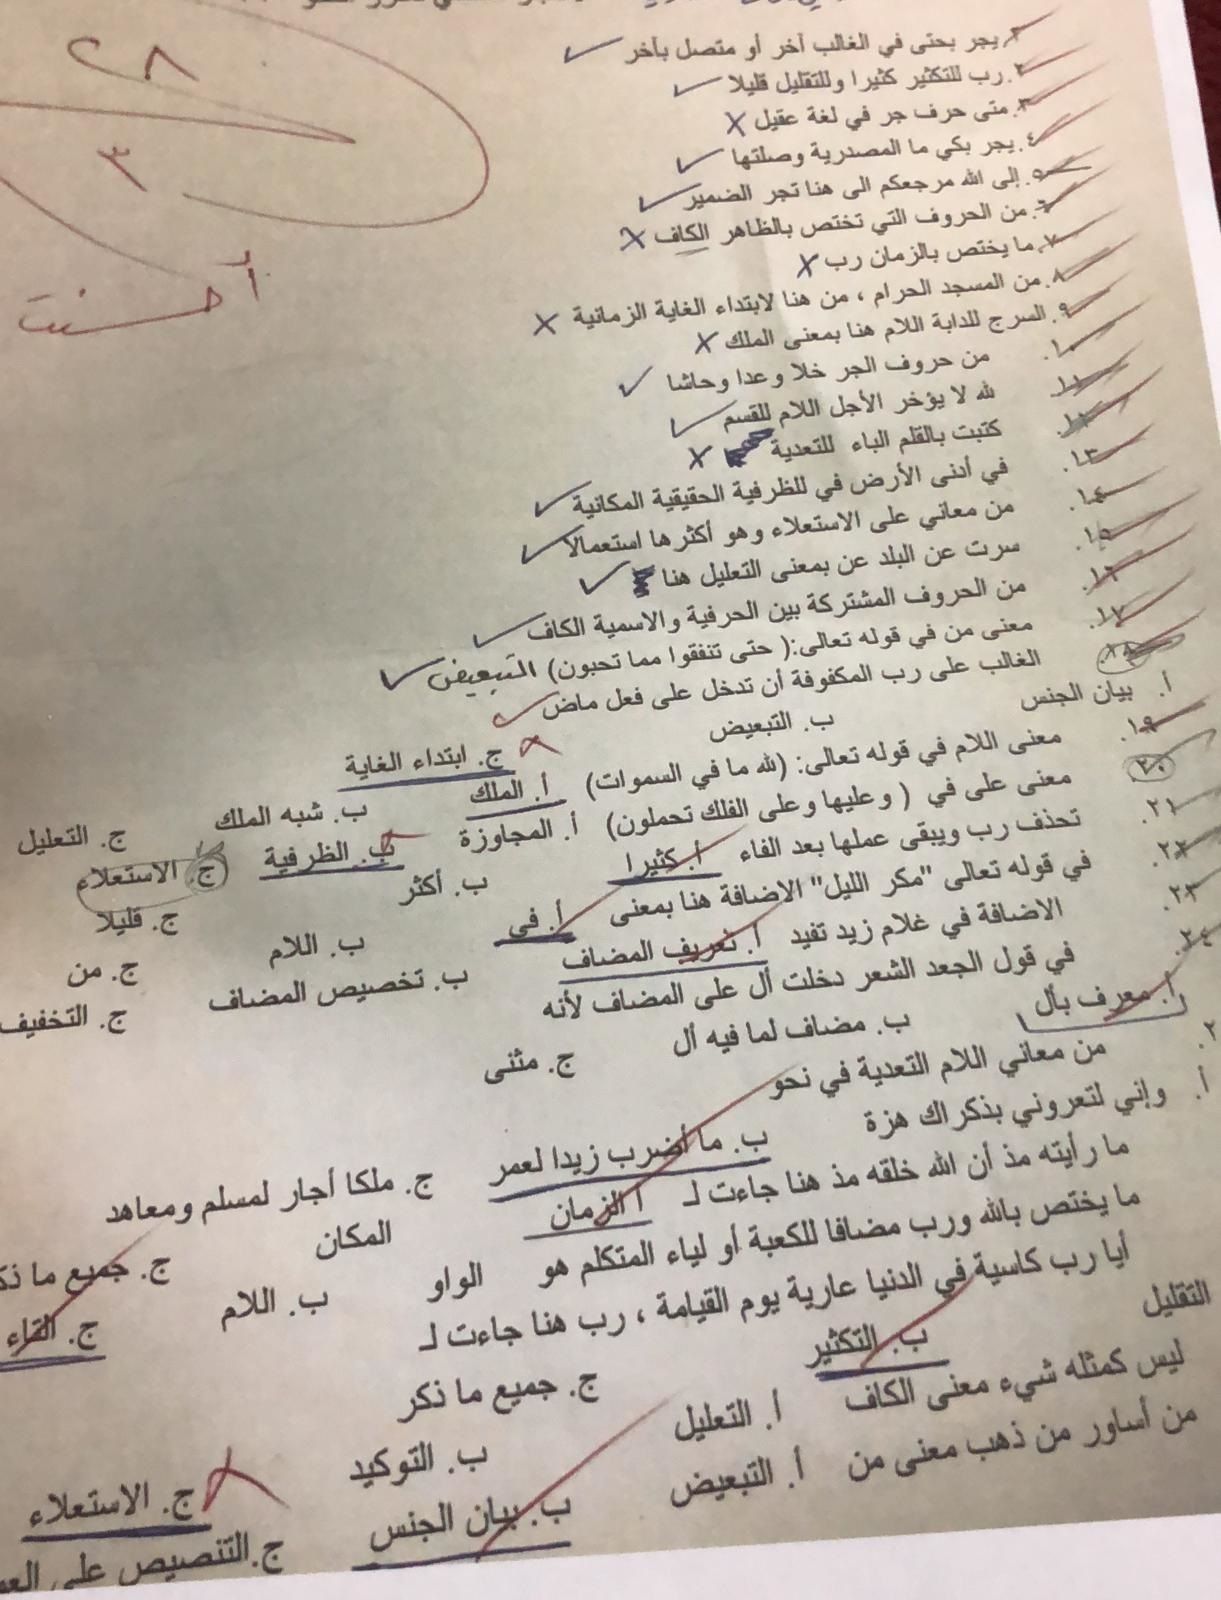 ٢٨
٣
أحسنت
١. يجر بحتى في الغالب آخر أو متصل بآخر ✓
٢. رب للتكثير كثيرا وللتقليل قليلا ✓
٣. متى حرف جر في لغة عقيل X
٤. يجر بكي ما المصدرية وصلتها ✓
٥. إلى الله مرجعكم الى هنا تجر الضمير ✓
٦. من الحروف التي تختص بالظاهر الكاف X
٧. ما يختص بالزمان رب X
٨. من المسجد الحرام ، من هنا لابتداء الغاية الزمانية X
٩. السرج للدابة اللام هنا بمعنى الملك X
١٠. من حروف الجر خلا وعدا وحاشا ✓
١١. لله لا يؤخر الأجل اللام للقسم ✓
١٢. كتبت بالقلم الباء للتعدية X
١٣. في أدنى الأرض في للظرفية الحقيقية المكانية ✓
١٤. من معاني على الاستعلاء وهو أكثرها استعمالا ✓
١٥. سرت عن البلد عن بمعنى التعليل هنا ✓
١٦. من الحروف المشتركة بين الحرفية والاسمية الكاف ✓
١٧. معنى من في قوله تعالى:( حتى تنفقوا مما تحبون) التبعيض ✓
١٨. الغالب على رب المكفوفة أن تدخل على فعل ماض
أ. بيان الجنس ب. التبعيض ج. ابتداء الغاية
١٩. معنى اللام في قوله تعالى: (لله ما في السموات) أ. الملك ب. شبه الملك ج. التعليل
٢٠. معنى على في ( وعليها وعلى الفلك تحملون) أ. المجاوزة ب. الظرفية ج. الاستعلاء
٢١. تحذف رب ويبقى عملها بعد الفاء أ. كثيرا ب. أكثر ج. قليلا
٢٢. في قوله تعالى "مكر الليل" الاضافة هنا بمعنى أ. في ب. اللام ج. من
٢٣. الاضافة في غلام زيد تفيد أ. تعريف المضاف ب. تخصيص المضاف ج. التخفيف
٢٤. في قول الجعد الشعر دخلت أل على المضاف لأنه
أ. معرف بأل ب. مضاف لما فيه أل ج. مثنى
٢. من معاني اللام التعدية في نحو
أ. وإني لتعروني بذكراك هزة ب. ما أضرب زيدا لعمر ج. ملكا أجار لمسلم ومعاهد
ما رأيته مذ أن الله خلقه مذ هنا جاءت لـ أ الزمان المكان ج. جميع ما ذكر
ما يختص بالله ورب مضافا للكعبة أو لياء المتكلم هو الواو ب. اللام ج. التاء
أيا رب كاسية في الدنيا عارية يوم القيامة ، رب هنا جاءت لـ
التقليل ب. التكثير ج. جميع ما ذكر
ليس كمثله شيء معنى الكاف أ. التعليل ب. التوكيد ج. الاستعلاء
من أساور من ذهب معنى من أ. التبعيض ب. بيان الجنس ج. التنصيص على